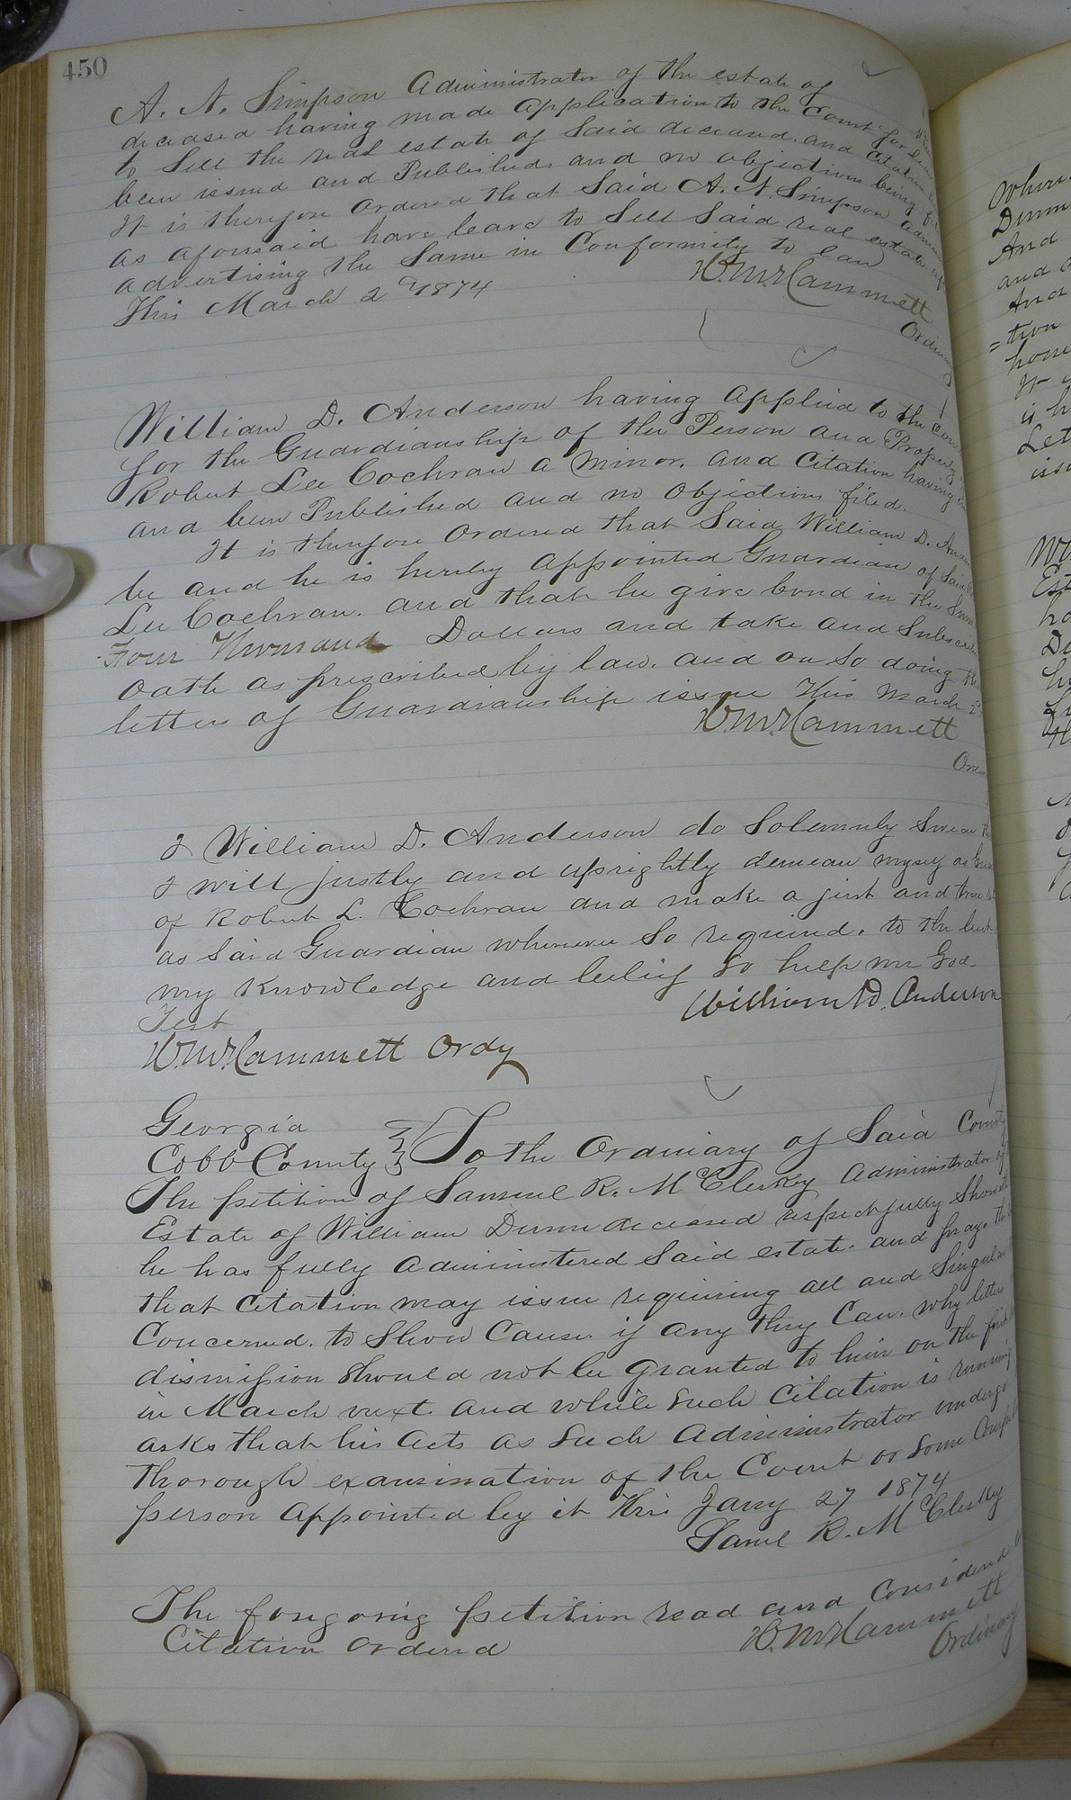 450
A. N. Simpson Administrator of the estate of
deceased having made application to the Court for
to Sell the real estate of Said deceased. and Citation
been issued and Published and no objections being
It is therefore ordered that Said A. N. Simpson
as aforesaid have leave to Sell Said real estate
advertising the Same in Conformity to law
This March 2d 1874
W.M. Hammett
Ordinary
William D. Anderson having applied to the
for the Guardianship of the Person and Property
Robert Lee Cochran a minor. and Citation having
and been Published and no objections filed.
It is therefore ordered that Said William D.
be and he is hereby appointed Guardian of Said
Lee Cochran. and that he give bond in the Sum
Four Thousand Dollars and take and Subscribe
Oath as prescribed by law. and on So doing
letters of Guardianship issue This March
W.M. Hammett
I William D. Anderson do Solemnly Swear
I will justly and uprightly demean myself as
of Robert L. Cochran and make a just and true
as Said Guardian whenever So required. to the best
my Knowledge and belief So help me God.
Test
William D. Anderson
W.M. Hammett Ordy
Georgia
Cobb County } To the Ordinary of Said County
The petition of Samuel R. McClesky Administrator of
Estate of William Dunn deceased respectfully
he has fully administered Said estate. and prays
that Citation may issue requiring all and Singular
Concerned. to Show Cause if any they Can. why letters
dismission Should not be granted to him on the
in March next and while Such Citation is running
asks that his acts as Such Administrator
Thorough examination of the Court or Some
person appointed by it This Jany 27 1874
Saml R. McClesky
The foregoing petition read and Considered
Citation ordered
W.M. Hammett
Ordinary